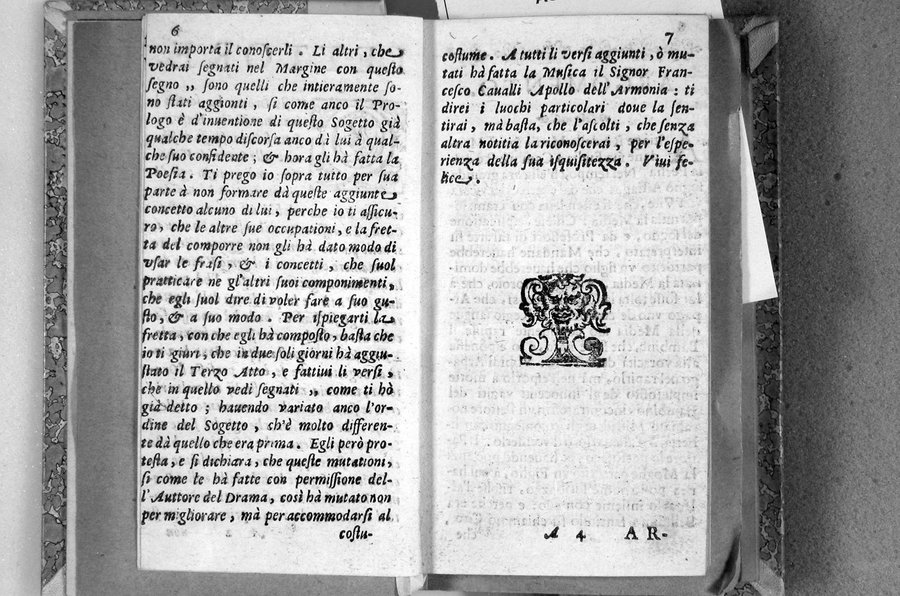 6
non importa il conoſcerli . Li altri , che
vedrai ſegnati nel Margine con queſto
ſegno ,, ſono quelli che intieramente ſo-
no ſtati aggionti , ſi come anco il Pro-
logo è d'inuentione di queſto Sogetto già
qualche tempo diſcorſa anco dà lui à qual-
che ſuo confidente ; & hora gli hà fatta la
Poeſia . Ti prego io ſopra tutto per ſua
parte à non formare dà queſte aggiunte
concetto alcuno di lui , perche io ti aſſicu-
ro , che le altre ſue occupationi , e la fret-
ta del comporre non gli hà dato modo di
vſar le fraſi , & i concetti , che ſuol
pratticare ne gl'altri ſuoi componimenti,
che egli ſuol dire di voler fare a ſuo gu-
ſto , & a ſuo modo . Per iſpiegarti la
fretta , con che egli hà compoſto , baſta che
io ti giuri , che in due ſoli giorni hà aggiu-
ſtato il Terzo Atto , e fattiui li verſi ,
che in quello vedi ſegnati ,, come ti hò
già detto ; hauendo variato anco l'or-
dine del Sogetto , ch'è molto differen-
te dà quello che era prima . Egli però pro-
teſta , e ſi dichiara , che queſte mutationi,
ſi come le hà fatte con permiſſione del-
l'Auttore del Drama , così hà mutato non
per migliorare , mà per accommodarſi al
coſtu-
7
coſtume . A tutti li verſi aggiunti , ò mu-
tati hà fatta la Muſica il Signor Fran-
ceſco Caualli Apollo dell'Armonia : ti
direi i luochi particolari doue la ſen-
tirai , mà baſta, che l'aſcolti , che ſenza
altra notitia la riconoſcerai , per l'eſpe-
rienza della ſua iſquiſitezza . Viui fe-
lice .
A 4 AR-